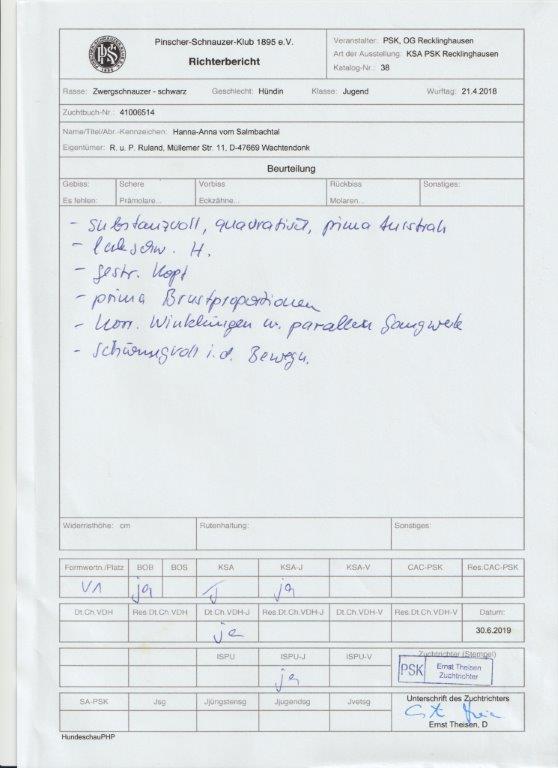 Pinscher-Schnauzer-Klub 1895 e.V.
Richterbericht
Veranstalter: PSK, OG Recklinghausen
Art der Ausstellung: KSA PSK Recklinghausen
Katalog-Nr.: 38
Rasse: Zwergschnauzer - schwarz Geschlecht: Hündin Klasse: Jugend Wurftag: 21.4.2018
Zuchtbuch-Nr.: 41006514
Name/Titel/Abr.-Kennzeichen: Hanna-Anna vom Salmbachtal
Eigentümer: R. u. P. Ruland, Müllemer Str. 11, D-47669 Wachtendonk
Beurteilung
Gebiss: Schere Vorbiss Rückbiss Sonstiges:
Es fehlen: Prämolare... Eckzähne... Molaren...
- substanzvoll, quadratisch, prima Ausstrah
- lackschw. H.
- gestr. Kopf
- prima Brustproportionen
- korr. Winklungen u. parallem Gangwerk
- schwungvoll i.d. Bewegn.
Widerristhöhe: cm Rutenhaltung: Sonstiges:
Formwertn./Platz BOB BOS KSA KSA-J KSA-V CAC-PSK Res.CAC-PSK
V1 ja ja
Dt.Ch.VDH Res.Dt.Ch.VDH Dt.Ch.VDH-J Res.Dt.Ch.VDH-J Dt.Ch.VDH-V Res.Dt.Ch.VDH-V Datum:
ja 30.6.2019
ISPU ISPU-J ISPU-V Zuchtrichter (Stempel)
ja
PSK Ernst Theisen
Zuchtrichter
SA-PSK Jsg Jüngstensg Jugendsg Jvetsg Unterschrift des Zuchtrichters
Ernst Theisen, D
HundeschauPHP